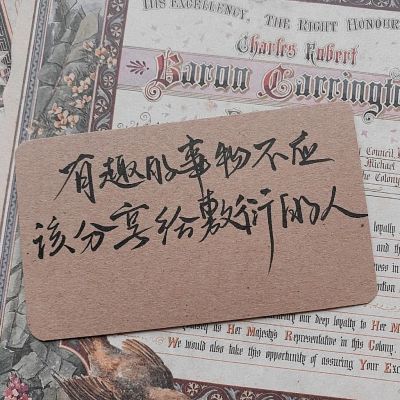 HIS EXCELLENCY, THE RIGHT HONOUR
Charles Robert
Baron Carrington
有趣的事物不应
该分享给敷衍的人
Council
Michael
the Colony
loyalty
and the
ness in
our deep loyalty to HER M
HER MAJESTY'S REPRESENTATIVE in this COLONY.
WE would also take this opportunity of assuring YOUR EXC